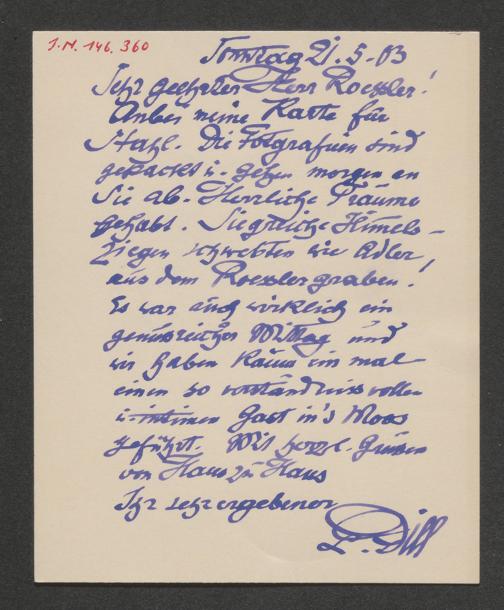 J.N. 146.360
Sonntag 21.5.03
Sehr geehrter Herr Roessler!
Anbei meine Karte für
Stahl. Die Fotografieen sind
gepackt u. gehen morgen an
Sie ab. Herrliche Träume
gehabt. Siegreiche Himels-
ziegen schwebten wie Adler
aus dem Roesslergraben!
Es war auch wirklich ein
genussreicher Mittag und
wir haben kaum ein mal
einen so verständnissvollen
u. intimen Gast in's Moos
geführt. Mit herzl. Grüssen
von Haus zu Haus
Ihr sehr ergebener
L. Dill